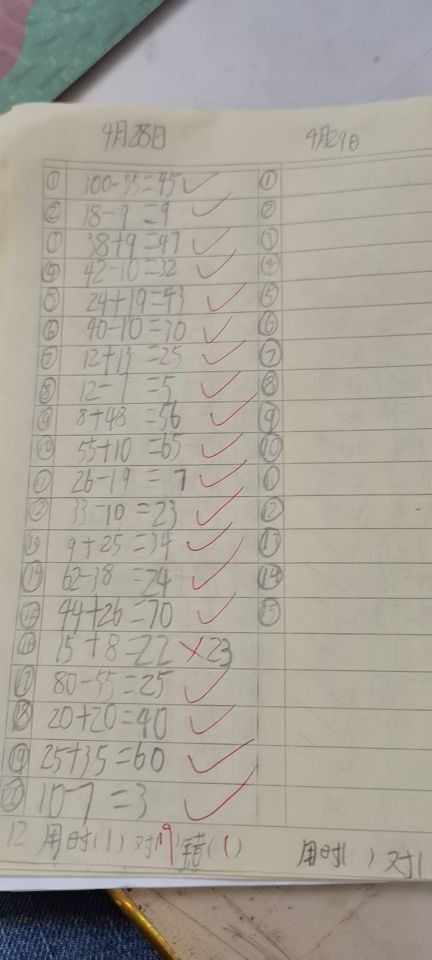 4月28日
① 100-55=45
② 18-9=9
③ 38+9=47
④ 42-10=32
⑤ 24+19=43
⑥ 40-10=30
⑦ 12+13=25
⑧ 12-7=5
⑨ 8+48=56
⑩ 55+10=65
⑪ 26-19=7
⑫ 33-10=23
⑬ 9+25=34
⑭ 62-38=24
⑮ 44+26=70
⑯ 15+8=22 ×23
⑰ 80-55=25
⑱ 20+20=40
⑲ 25+35=60
⑳ 10-7=3
12 用时(1) 对19 错(1)
4月29日
①
②
③
④
⑤
⑥
⑦
⑧
⑨
⑩
⑪
⑫
⑬
⑭
⑮
用时( ) 对(